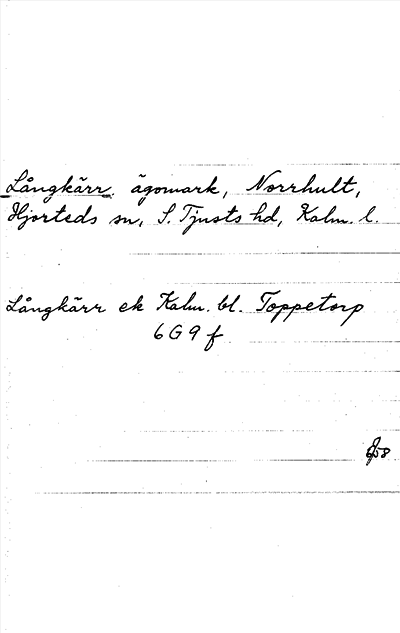 Långkärr, ägomark, Norrhult,
Hjorteds sn, S. Tjusts hd, Kalm. l.
Långkärr ek Kalm. bl. Toppetorp
6G9f